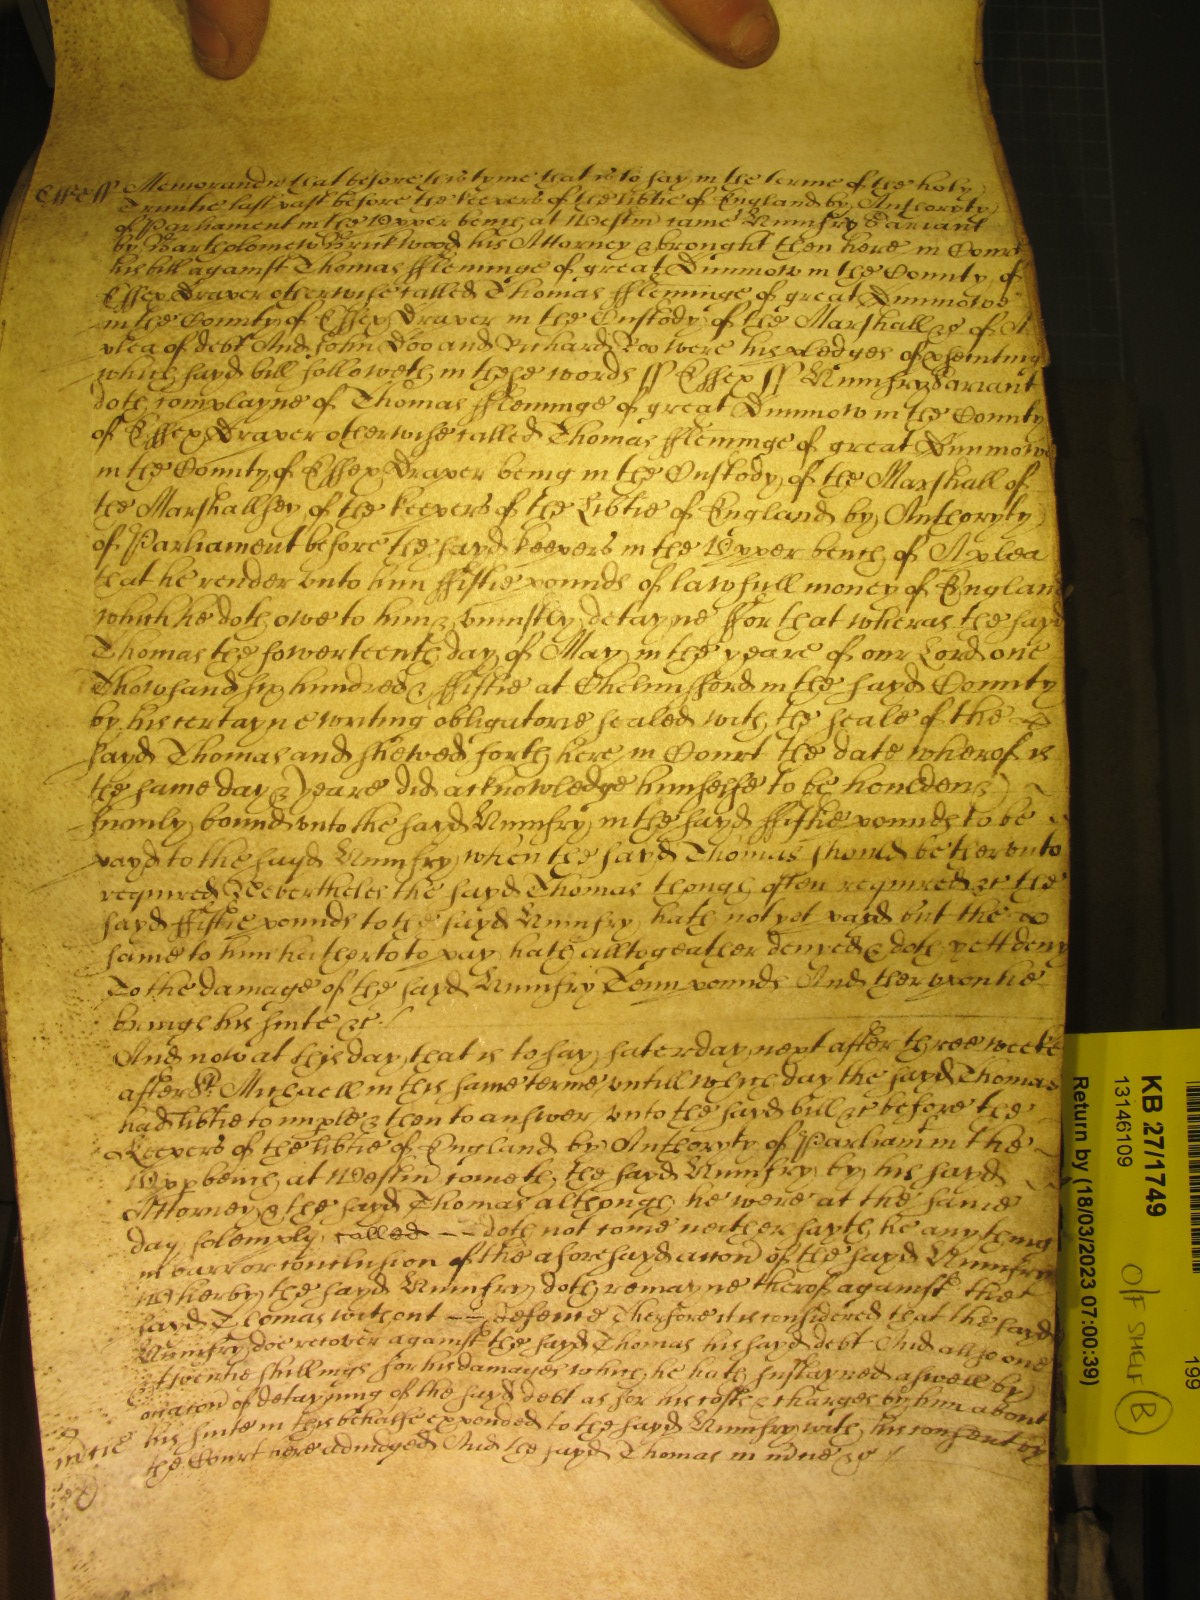 Essex ss Memorand that before this tyme that is to say in the terme of the holy
Trinitie last past before the keepers of the libtie of England by Authoryty
of Parliament in the Upper bench at Westm came Humfry Sariant
by Bartholomew Brickwood his Attorney & brought then here in Court
his bill against Thomas Fleminge of great Dunmow in the County of
Essex Draper otherwise called Thomas Fleminge of great Dunmowe
in the County of Essex Draper in the Custody of the Marshall &c of A
plea of debt And John Doo and Richard Roo were his pledges of psecuting
which sayd bill followeth in these words ss Essex ss Humfry Sariant
doth complayne of Thomas Fleminge of great Dunmow in the County
of Essex Draper otherwise called Thomas Fleminge of great Dunmowe
in the County of Essex Draper being in the Custody of the Marshall of
the Marshallsey of the keepers of the Libtie of England by Authoryty
of Parliament before the sayd keepers in the Upper bench of A plea
that he render unto him fiftie pounds of lawfull money of England
which he doth owe to him & uniustly detayne For that wheras the sayd
Thomas the fowerteenth day of May in the yeare of our Lord one
Thowsand six hundred & fiftie at Chelmsford in the sayd County
by his certayne writing obligatorie sealed with the seale of the
sayd Thomas and shewed forth here in Court the date wherof is
the same day & yeare did acknowledge himselfe to be houlden &
firmly bound unto the sayd Humfry in the sayd fiftie pounds to be
payd to the sayd Humfry when the sayd Thomas should be therunto
required Nevertheles the sayd Thomas though often required &c the
sayd fiftie pounds to the sayd Humfry hath not yet payd but the
same to him hitherto to pay hath alltogeather denyed & doth yett deny
To the damage of the sayd Humfry Tenn pounds And therupon he
brings his suite &c
And now at this day that is to say saterday next after three weeks
after St Michaell in this same terme untill which day the sayd Thomas
had libtie to imple & then to answer unto the sayd bill &c before the
Keepers of the libtie of England by Authoryty of Parliam in the
Upp bench at Westm cometh the sayd Humfry by his sayd
Attorney & the sayd Thomas although he were at the same
day solemply called -- doth not come neither sayth he any thing
in barr or conclusion of the aforesayd accon of the sayd Humfry
Wherby the sayd Humfry doth remayne therof against the
sayd Thomas without -- defence Therfore it is considered that the sayd
Humfry doe recover against the sayd Thomas his sayd debt And allso one
& twentie shillings for his damages which he hath sustayned aswell by
occacon of detayning of the sayd debt as for his costs & charges by him about
his suite in this behalfe expended to the sayd Humfry with his consent by
the Court here adiudged And the sayd Thomas in mcie &c
in mcie
KB 27/1749
13146109
Return by (18/03/2023 07:00:39)
O/F SHELF B
199